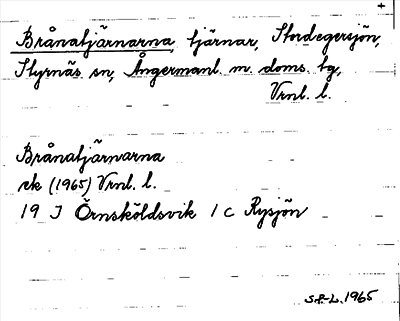 Brånatjärnarna, tjärnar, Stordegersjön,
Styrnäs sn, Ångermanl. m. doms. tg,
Vrnl. l.
Brånatjärnarna
ek (1965) Vrnl. l.
19 J Örnsköldsvik 1 c Rysjön
S.F-L. 1965